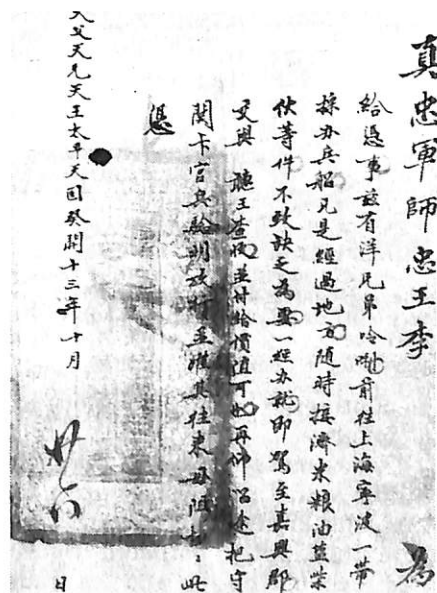 真忠軍師忠王李 為
給憑事兹有洋兄弟呤唎前往上海寧波一帶
採办兵船凡是經過地方隨時接濟米粮油盐柴
伙等件不致缺乏為要一經办就即駕至嘉興郡
交與 聽王查收並付給價值可也再仰沿途把守
関卡官兵騐明放行並准其往来毋阻切〻此
憑
天父天兄天王太平天囯癸開十三年十月廿六日